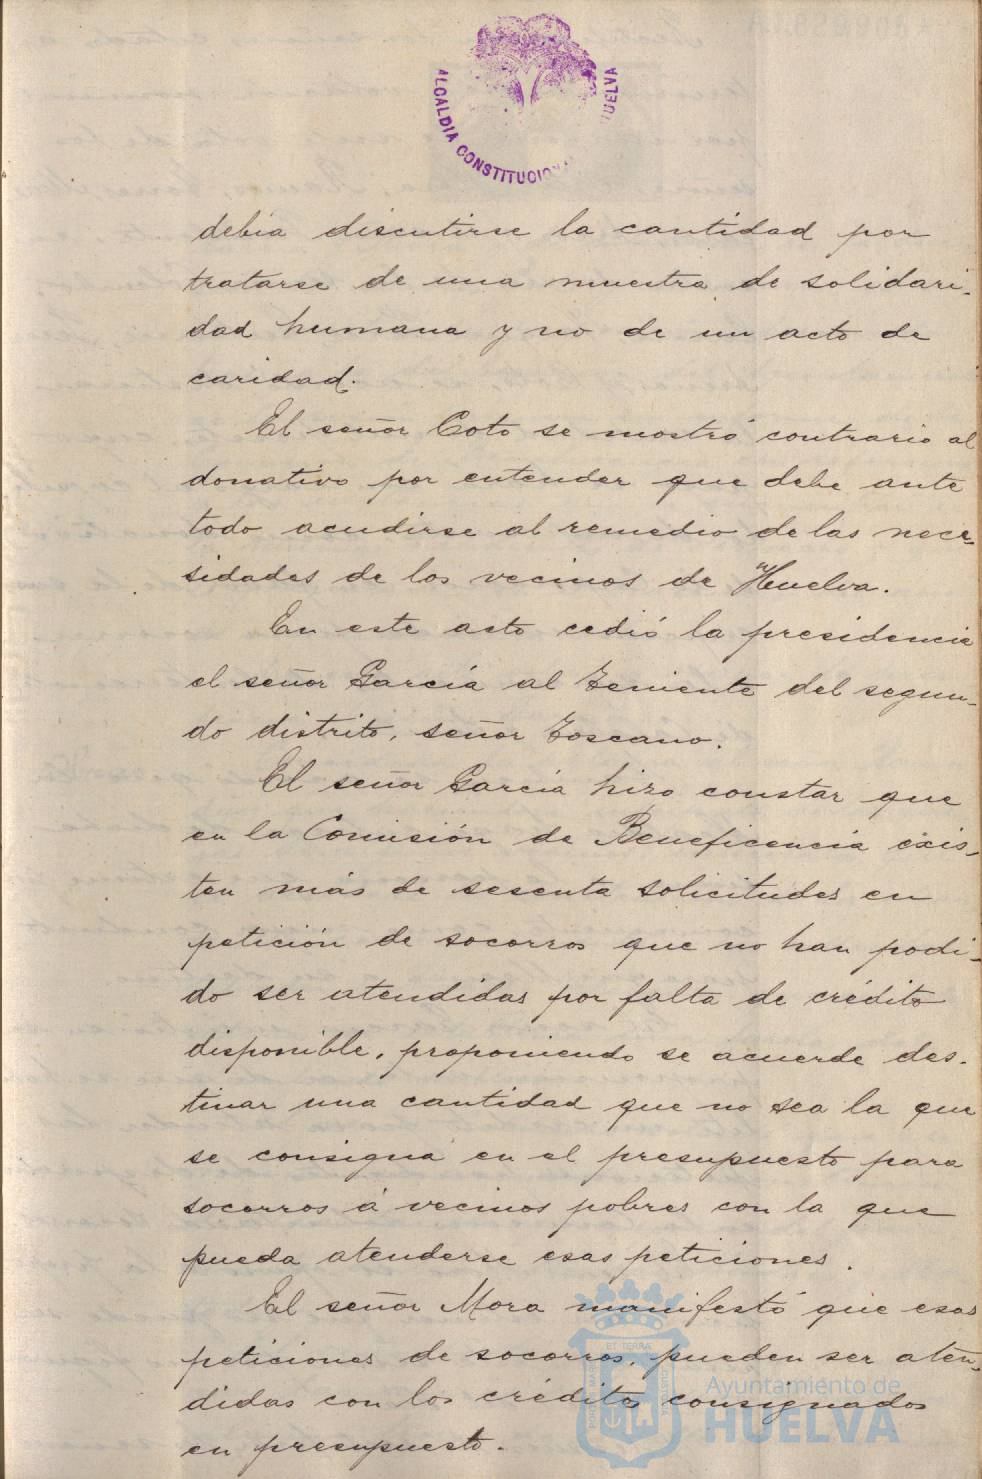 ALCALDIA CONSTITUCION
debia discutirse la cantidad por
tratarse de una muestra de solidari-
dad humana y no de un acto de
caridad.
El señor Coto se mostró contrario al
donativo por entender que debe ante
todo acudirse al remedio de las nece-
sidades de los vecinos de Huelva.
En este acto cedió la presidencia
el señor García al Teniente del segun-
do distrito, señor Toscano.
El señor García hizo constar que
en la Comisión de Beneficencia exis-
ten más de sesenta solicitudes en
petición de socorros que no han podi-
do ser atendidas por falta de crédito
disponible, proponiendo se acuerde des-
tinar una cantidad que no sea la que
se consigna en el presupuesto para
socorros á vecinos pobres con la que
pueda atenderse esas peticiones.
El señor Mora manifestó que esas
peticiones de socorros, pueden ser aten-
didas con los créditos consignados
en presupuesto.
Ayuntamiento de
HUELVA